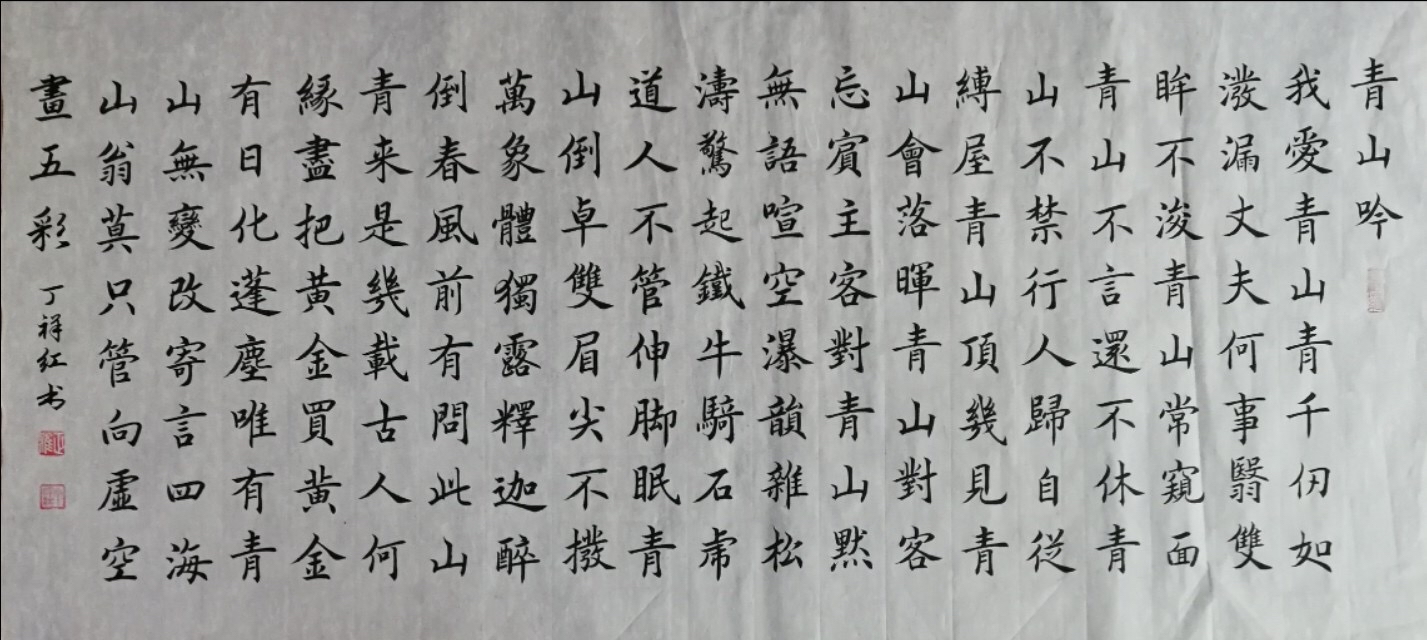 青山吟
我愛青山青千仞如
潑漏丈夫何事翳雙
眸不浚青山常窺面
青山不言還不休青
山不禁行人歸自従
縛屋青山頂幾見青
山會落暉青山對客
忘賓主客對青山黙
無語喧空瀑韻雜松
濤驚起鐵牛騎石虎
道人不管伸脚眠青
山倒卓雙眉尖不撥
萬象體獨露釋迦醉
倒春風前有問此山
青来是幾載古人何
緣盡把黄金買黄金
有日化蓬塵唯有青
山無變改寄言四海
山翁莫只管向虛空
畫五彩
丁祥红书